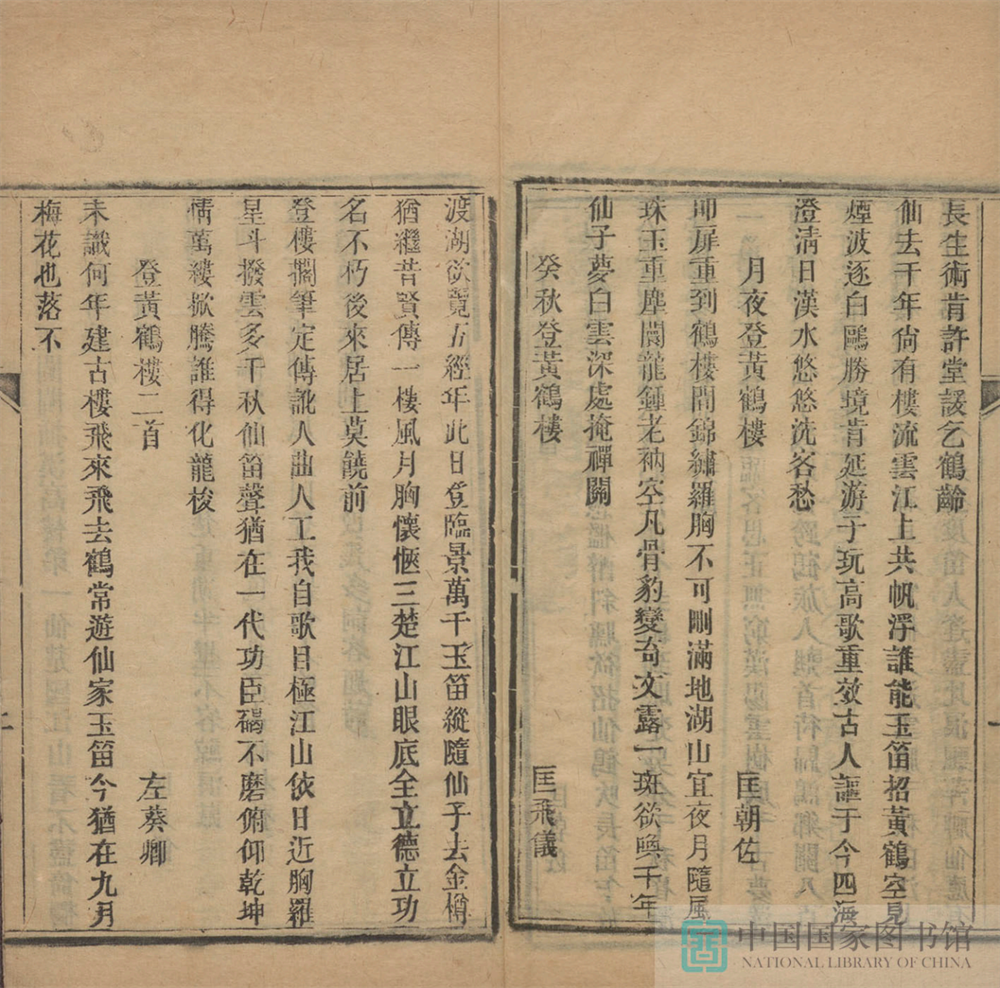 長生術肯許堂諼乞鶴齡
仙去千年尙有樓流雲江上共帆浮誰能玉笛招黃鶴空見
煙波逐白鷗勝境肯延游子玩高歌重效古人謳于今四海
澄清日漢水悠悠洗客愁
月夜登黃鶴樓 匡朝佐
即扉重到鶴樓間錦繡羅胸不可刪滿地湖山宜夜月隨風
珠玉重塵闤龍鍾老衲空凡骨豹變奇文露一斑欲喚千年
仙子夢白雲深處掩禪關
癸秋登黃鶴樓 匡飛儀
渡湖欲覽五經年此日登臨景萬千玉笛縱隨仙子去金樽
猶繼昔賢傳一樓風月胸懷愜三楚江山眼底全立德立功
名不朽後來居上莫饒前
登樓擱筆定傳訛人曲人工我自歌目極江山依日近胸羅
星斗撥雲多千秋仙笛聲猶在一代功臣碣不磨俯仰乾坤
情萬縷掀騰誰得化龍梭
登黃鶴樓二首 左葵卿
未識何年建古樓飛來飛去鶴常遊仙家玉笛今猶在九月
梅花也落不
中国国家图书馆
NATIONAL LIBRARY OF CHINA